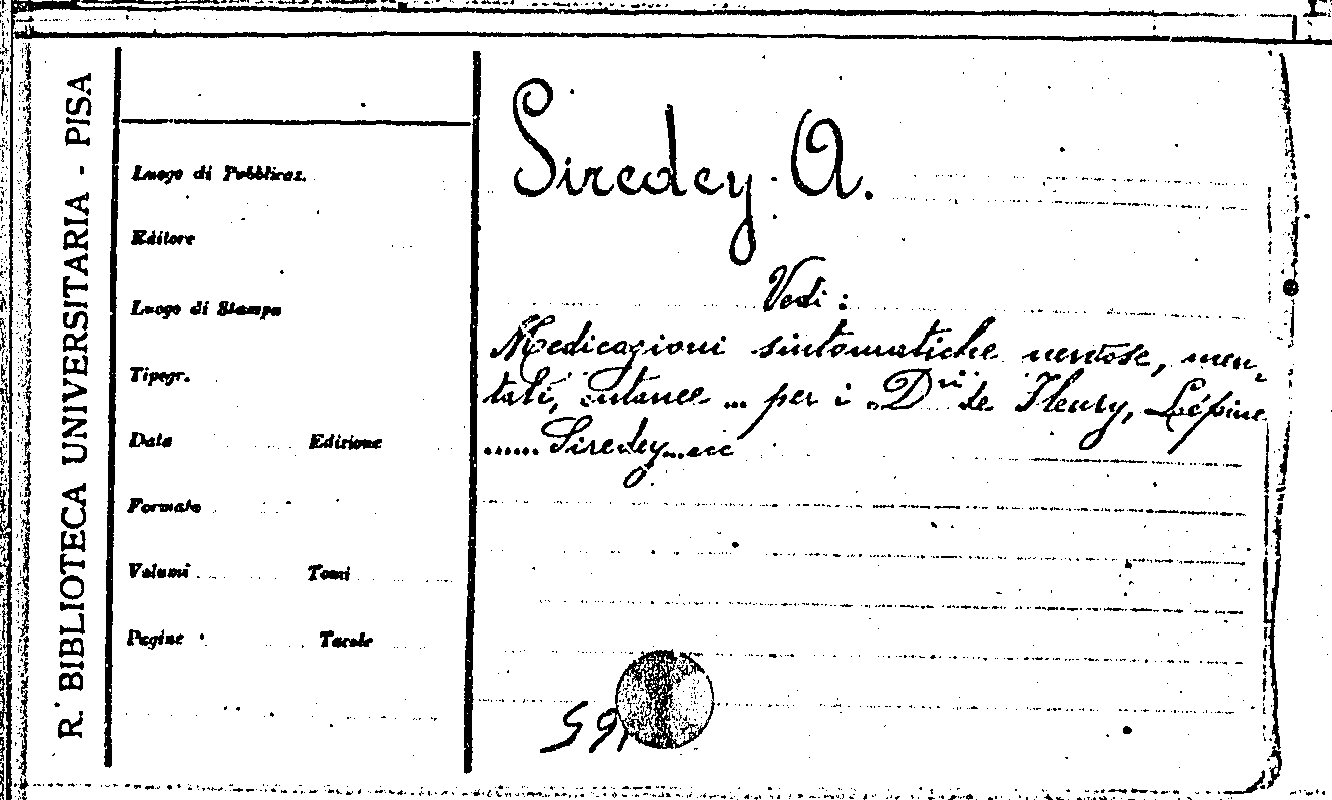 R. BIBLIOTECA UNIVERSITARIA - PISA
Luogo di Pubblicaz.
Editore
Luogo di Stampa
Tipogr.
Data Edizione
Formato
Volumi Tomi
Pagine Tavole
Siredey A.
Vedi :
Medicazioni sintomatiche nervose, men-
tali, cutanee ... per i Dri de Fleury, Lépine
...... Siredey... ecc